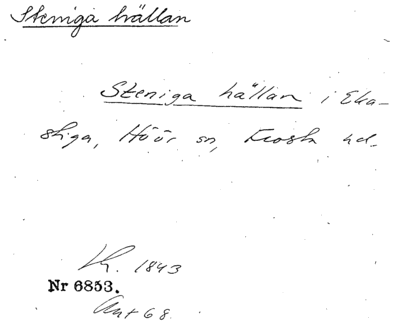 Steniga hällan
Steniga hällan i Eka-
stiga, Höör sn, Frosta hd.
Lh. 1843
Nr 6853.
Ant 68.